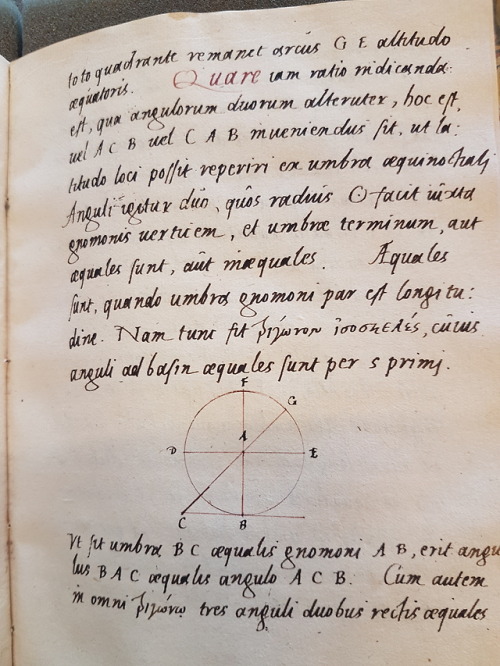 toto quadrante remanet arcus G E altitudo
æquatoris. Quare iam ratio indicanda
est, qua angulorum duorum alteruter, hoc est,
uel A C B uel C A B inueniendus sit, ut la:
titudo loci possit reperiri ex umbra æquinoctiali
Anguli igitur duo, quos radius ☉ facit iuxta
gnomonis uerticem, et umbræ terminum, aut
æquales sunt, aut inæquales. Æquales
sunt, quando umbra gnomoni par est longitu:
dine. Nam tunc fit τρίγωνον ἰσοσκελές, cuius
anguli ad basin æquales sunt per 5 primi.
F
G
A
D
E
C
B
Vt sit umbra B C æqualis gnomoni A B, erit angu
lus B A C æqualis angulo A C B. Cum autem
in omni τριγώνῳ tres anguli duobus rectis æquales